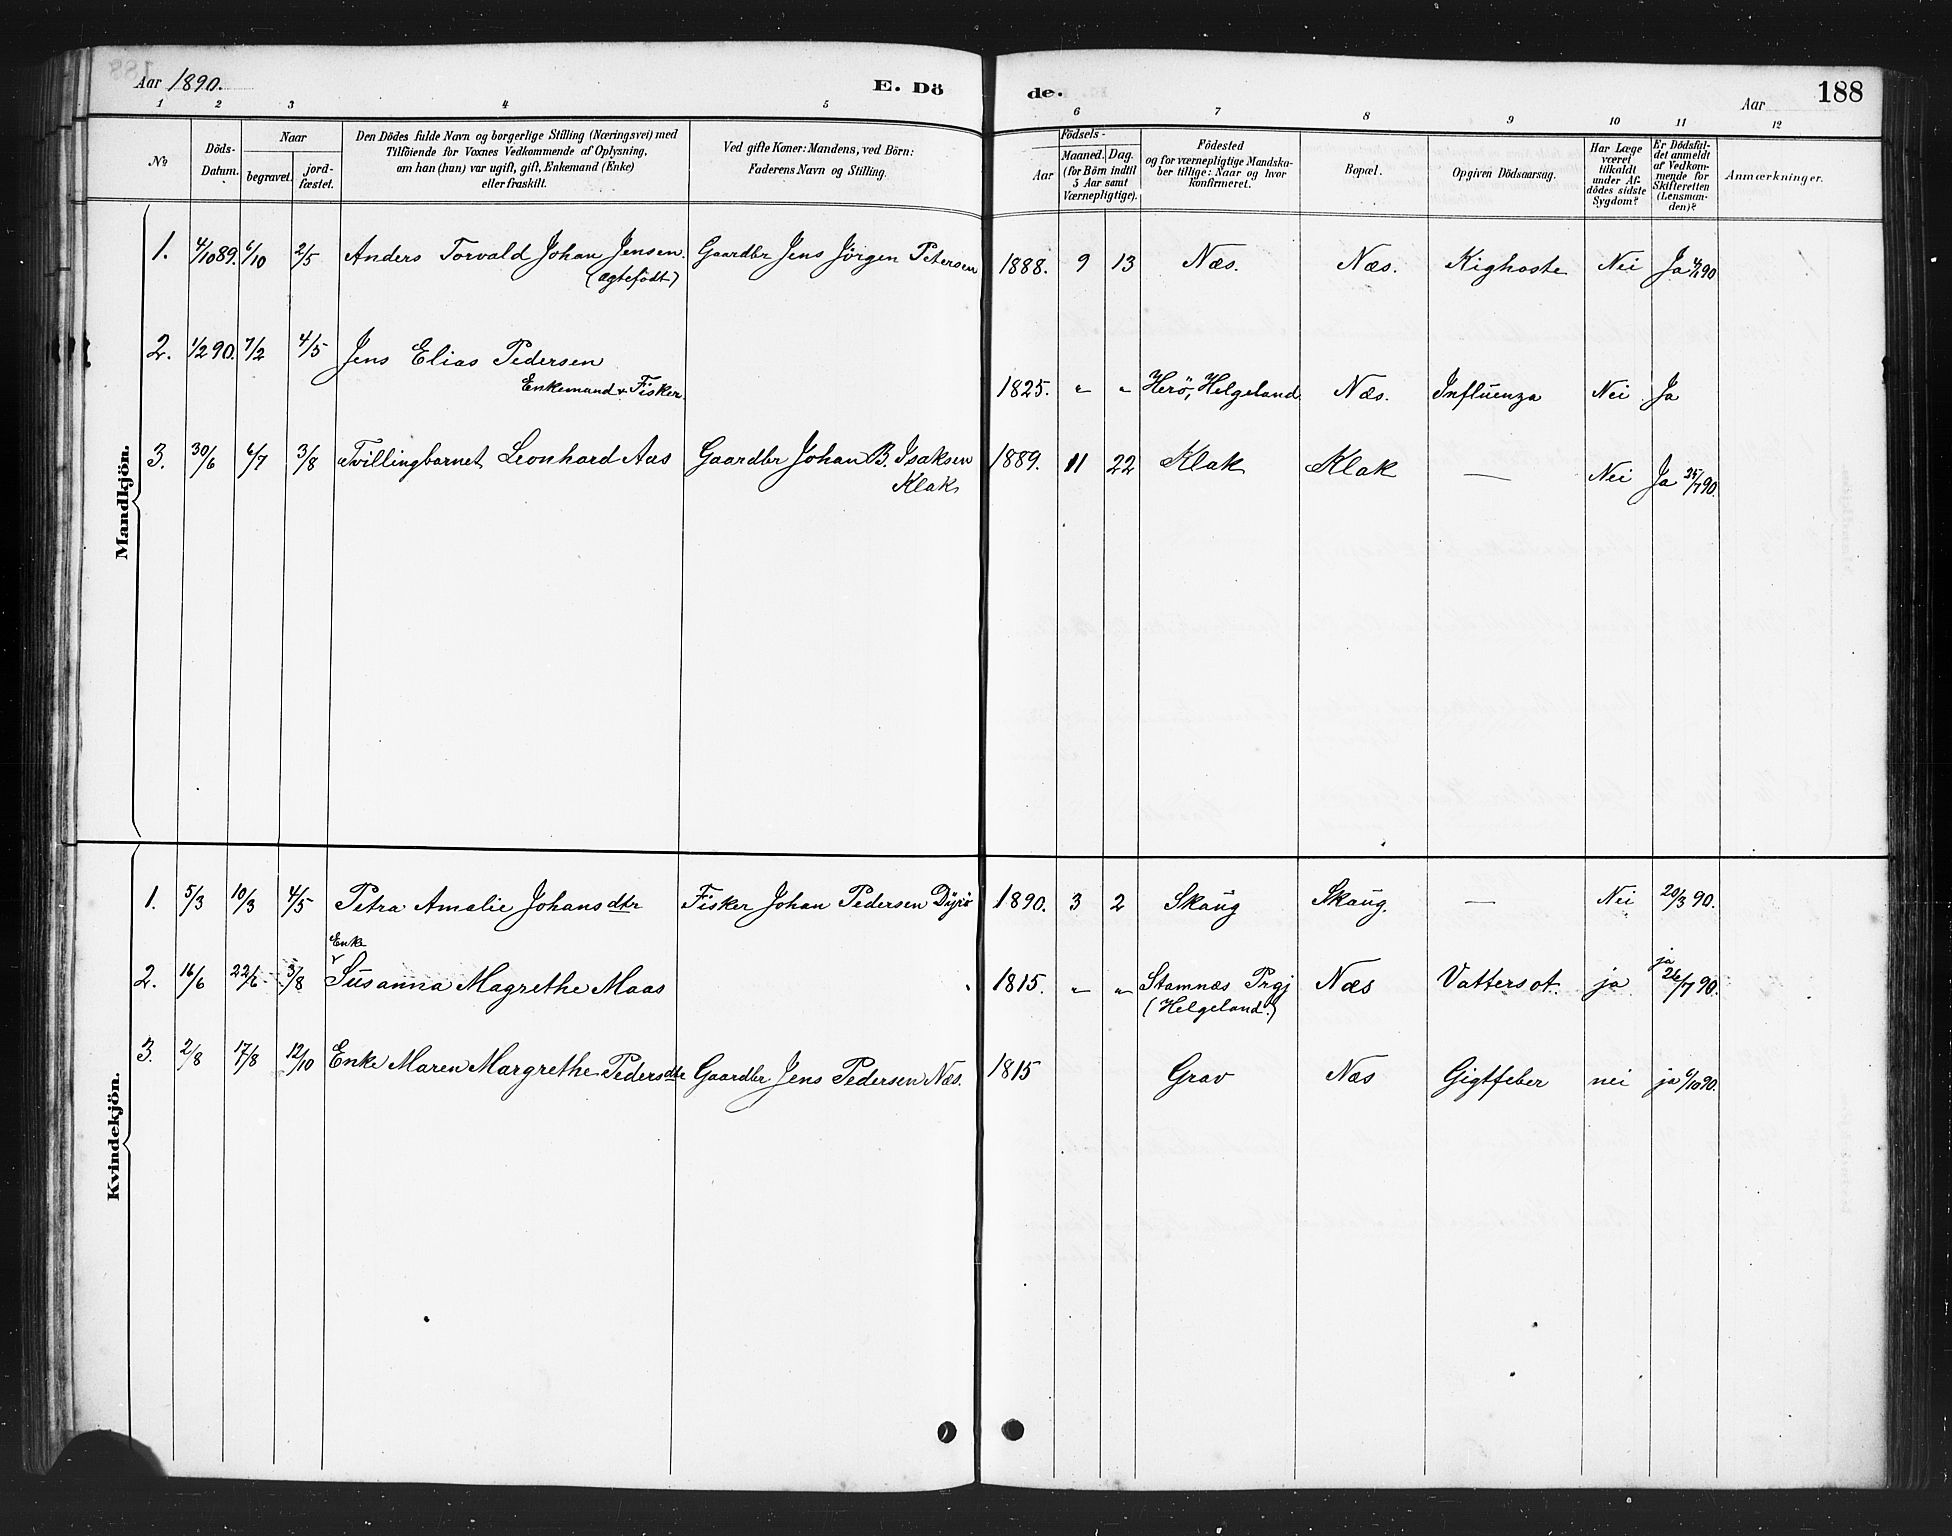 Aar 1890.
E. Dö
de.
Aar
188
1 2 3 4 5 6 7 8 9 10 11 12
No
Döds-
Datum.
Naar
begravet.
jord-
fæstet.
Den Dödes fulde Navn og borgerlige Stilling (Næringsvei) med
Tilföiende for Voxnes Vedkommende af Oplysning,
om han (hun) var ugift, gift, Enkemand (Enke)
eller fraskilt.
Ved gifte Koner: Mandens, ved Börn:
Faderens Navn og Stilling.
Födsels-
Aar
Maaned.
Dag.
(for Börn indtil
5 Aar samt
Værnepligtige).
Födested
og for værnepligtige Mandska-
ber tillige: Naar og hvor
konfirmeret.
Bopæl.
Opgiven Dödsaarsag.
Har Læge
været
tilkaldt
under Af-
dödes sidste
Sygdom?
Er Dödsfal-
det anmeldt
af Vedkom-
mende for
Skifteretten
(Lensman-
den)?
Anmærkninger.
Mandkjön.
1. 4/10 89. 6/10 2/5 Anders Torvald Johan Jensen. Gaardbr Jens Jörgen Petersen 1888. 9 13 Næs. Næs. Kighoste Nei Ja
(ægtefödt)
2. 1/2 90. 7/2 4/5 Jens Elias Pedersen
Enkemand v. Fisker. 1825. " " Herö, Helgeland Næs. Influenza Nei Ja
3. 30/6 6/7 3/8 Tvillingbarnet Leonhard Aas Gaardbr Johan B. Isaksen 1889. 11 22 Klak Klak — Nei Ja 25/7 90.
Klak
Kvindekjön.
1. 5/3 10/3 4/5 Petra Amalie Johansdtr Fisker Johan Pedersen Dyrö 1890. 3 2 Skaug Skaug. — Nei 20/3 90.
Enke
2. 16/6 22/6 3/8 Susanna Magrethe Maas 1815. " " Stamnæs Prgj Næs Vattersot. ja ja 26/7 90.
(Helgeland.)
3. 2/8 17/8 12/10 Enke Maren Margrethe Pedersdtr Gaardbr Jens Pedersen Næs. 1815 Grav Næs Gigtfeber nei ja 6/10 90.